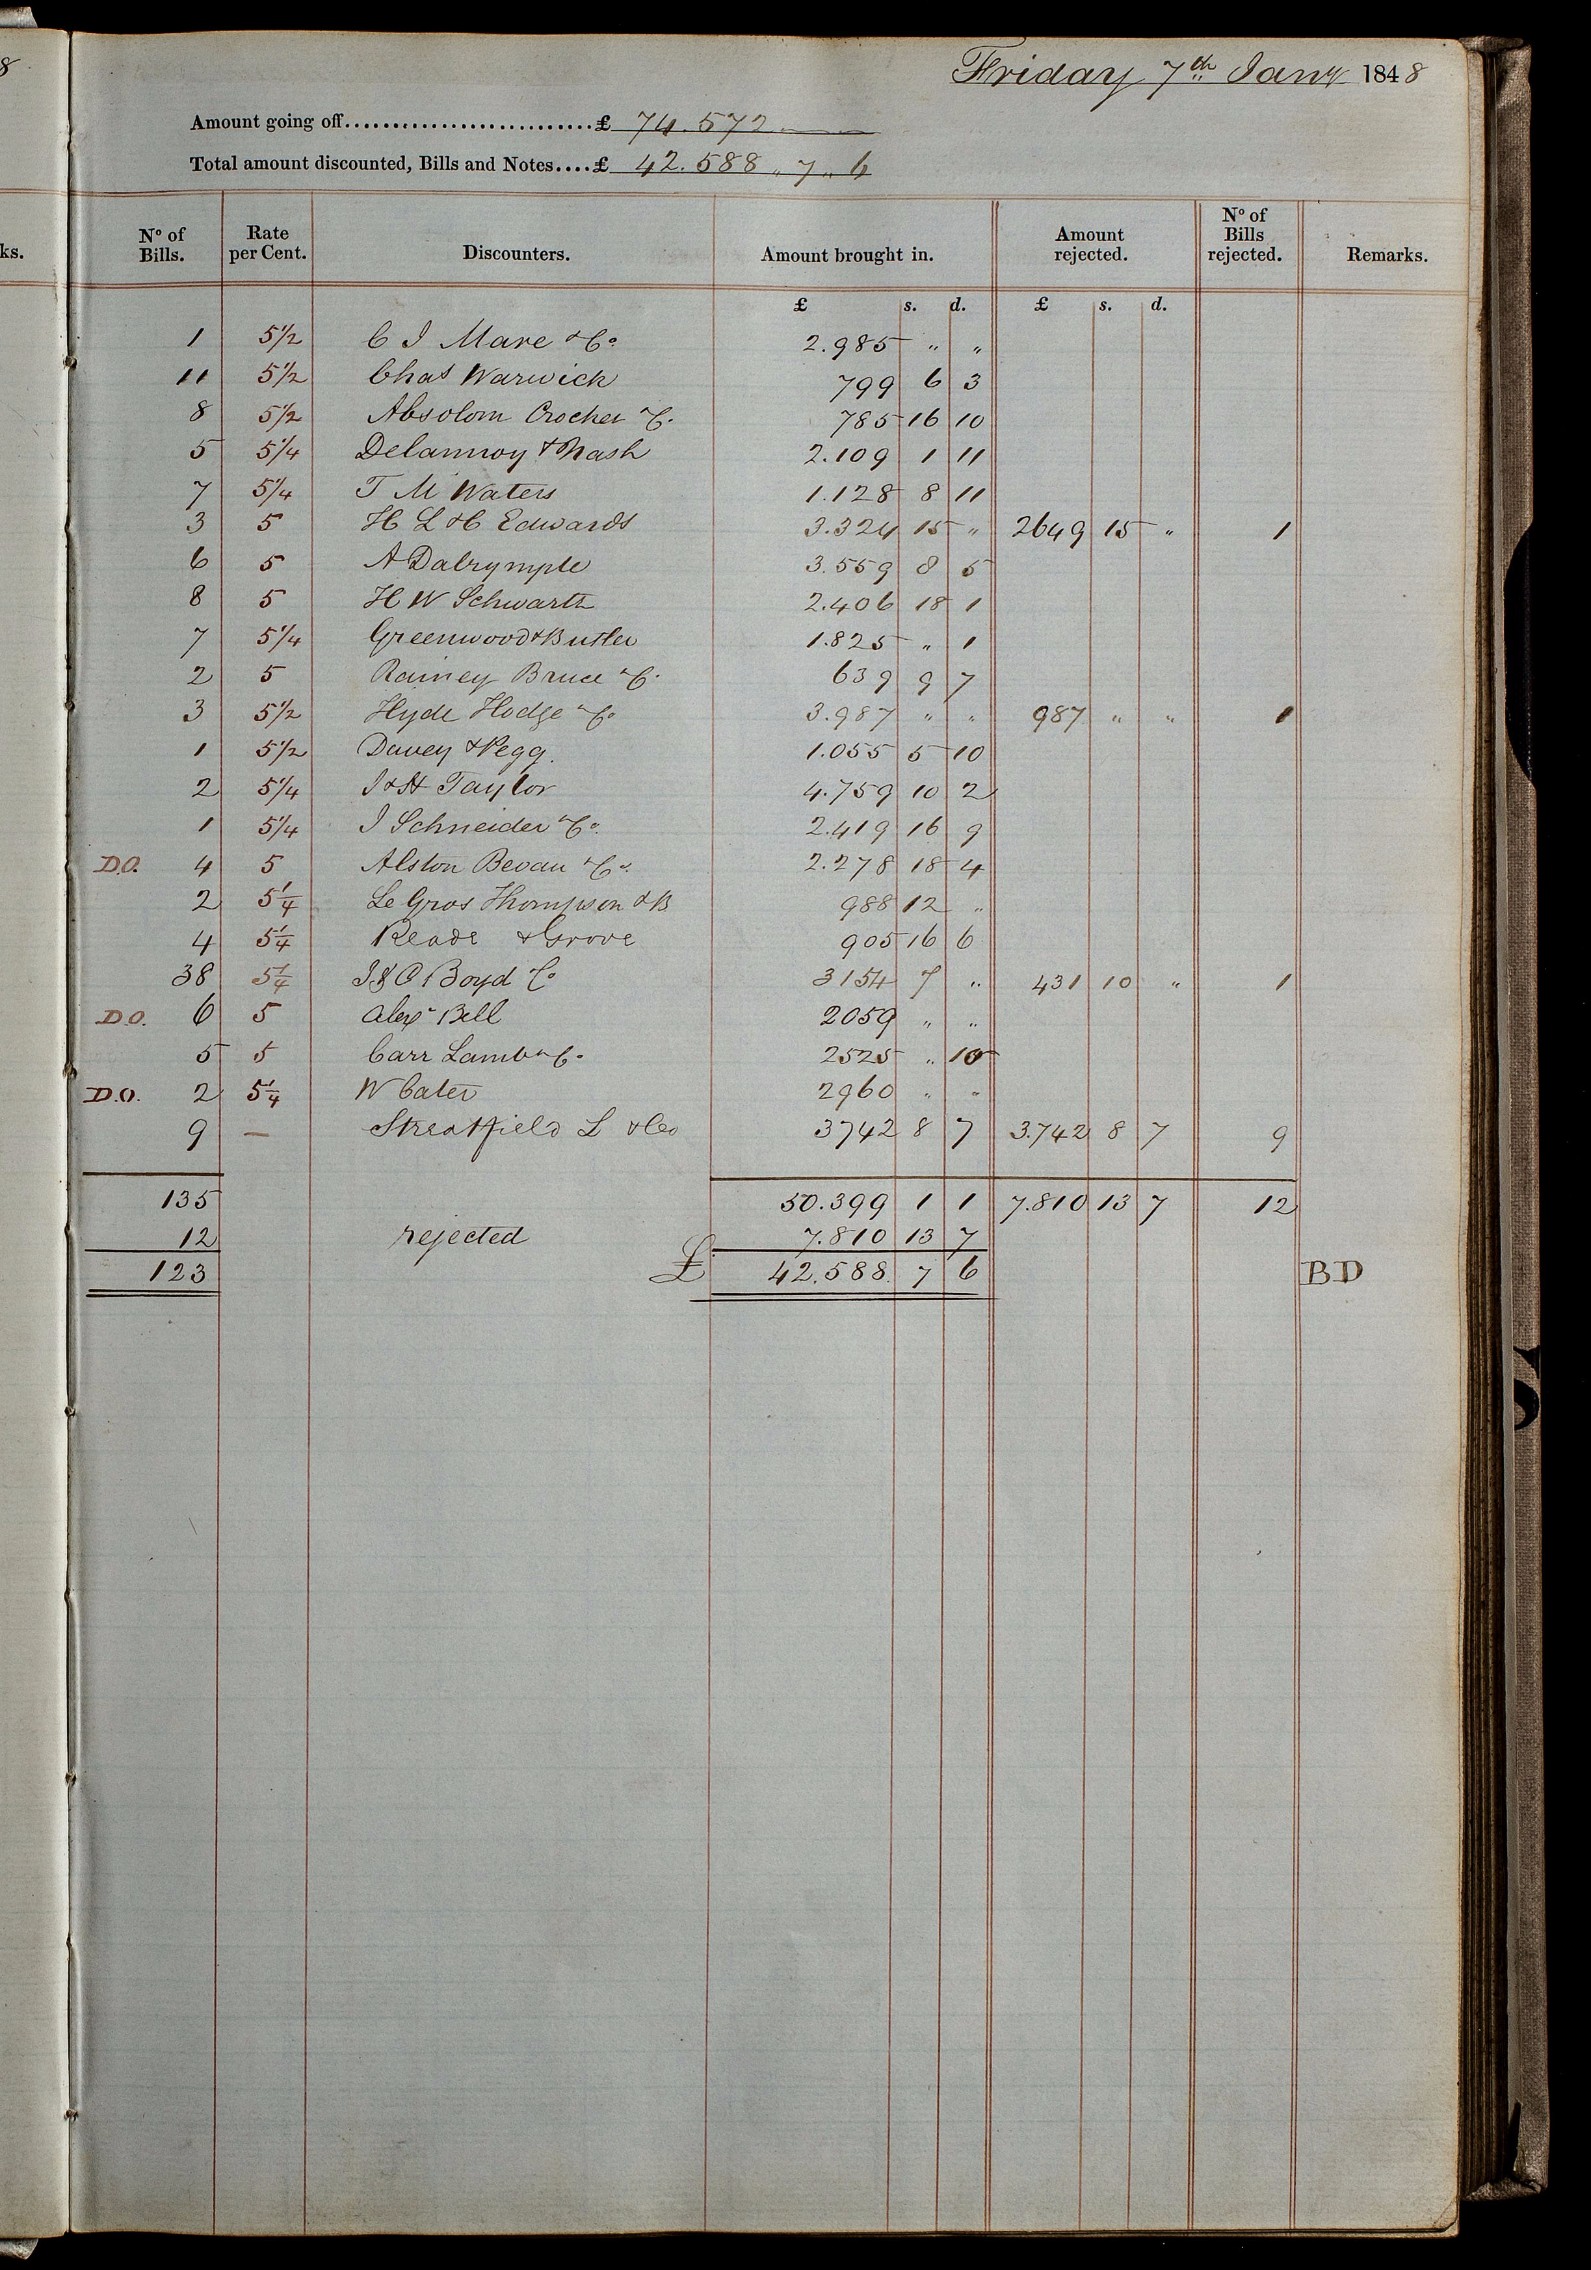 8
ks.
Friday 7th Jany 1848
Amount going off...........................£ 74.572 — —
Total amount discounted, Bills and Notes....£ 42.588 „ 7 „ 6
No of Bills. Rate per Cent. Discounters. Amount brought in. Amount rejected. No of Bills rejected. Remarks.
£ s. d. £ s. d.
1 5 1/2 C J Mare & Co 2.985 „ „
11 5 1/2 Chas Warwick 799 6 3
8 5 1/2 Absolom Crocker & C. 785 16 10
5 5 1/4 Delannoy & Nash 2.109 1 11
7 5 1/4 T M Waters 1.128 8 11
3 5 H L & C Edwards 3.324 15 „ 2649 15 „ 1
6 5 A Dalrymple 3.559 8 5
8 5 H W Schwartz 2.406 18 1
7 5 1/4 Greenwood & Butler 1.825 „ 1
2 5 Rainey Bruce & C. 639 9 7
3 5 1/2 Hyde Hodge & Co 3.987 „ „ 987 „ „ 1
1 5 1/2 Davey & Pegg. 1.055 5 10
2 5 1/4 J & H Taylor 4.759 10 2
1 5 1/4 J Schneider & Co. 2.419 16 9
D.O. 4 5 Alston Bevan & Co. 2.278 18 4
2 5 1/4 Le Gros Thompson & B 988 12 „
4 5 1/4 Reade & Grove 905 16 6
38 5 1/4 J & C Boyd & Co 3154 7 „ 431 10 „ 1
D.O. 6 5 Alexr Bell 2059 „ „
5 5 Carr Lamb & C. 2525 „ 10
D.O. 2 5 1/4 W Cater 2960 „ „
9 — Streatfield L & Co 3742 8 7 3.742 8 7 9
135 50.399 1 1 7.810 13 7 12
12 rejected 7.810 13 7
123 £ 42.588 7 6 BD